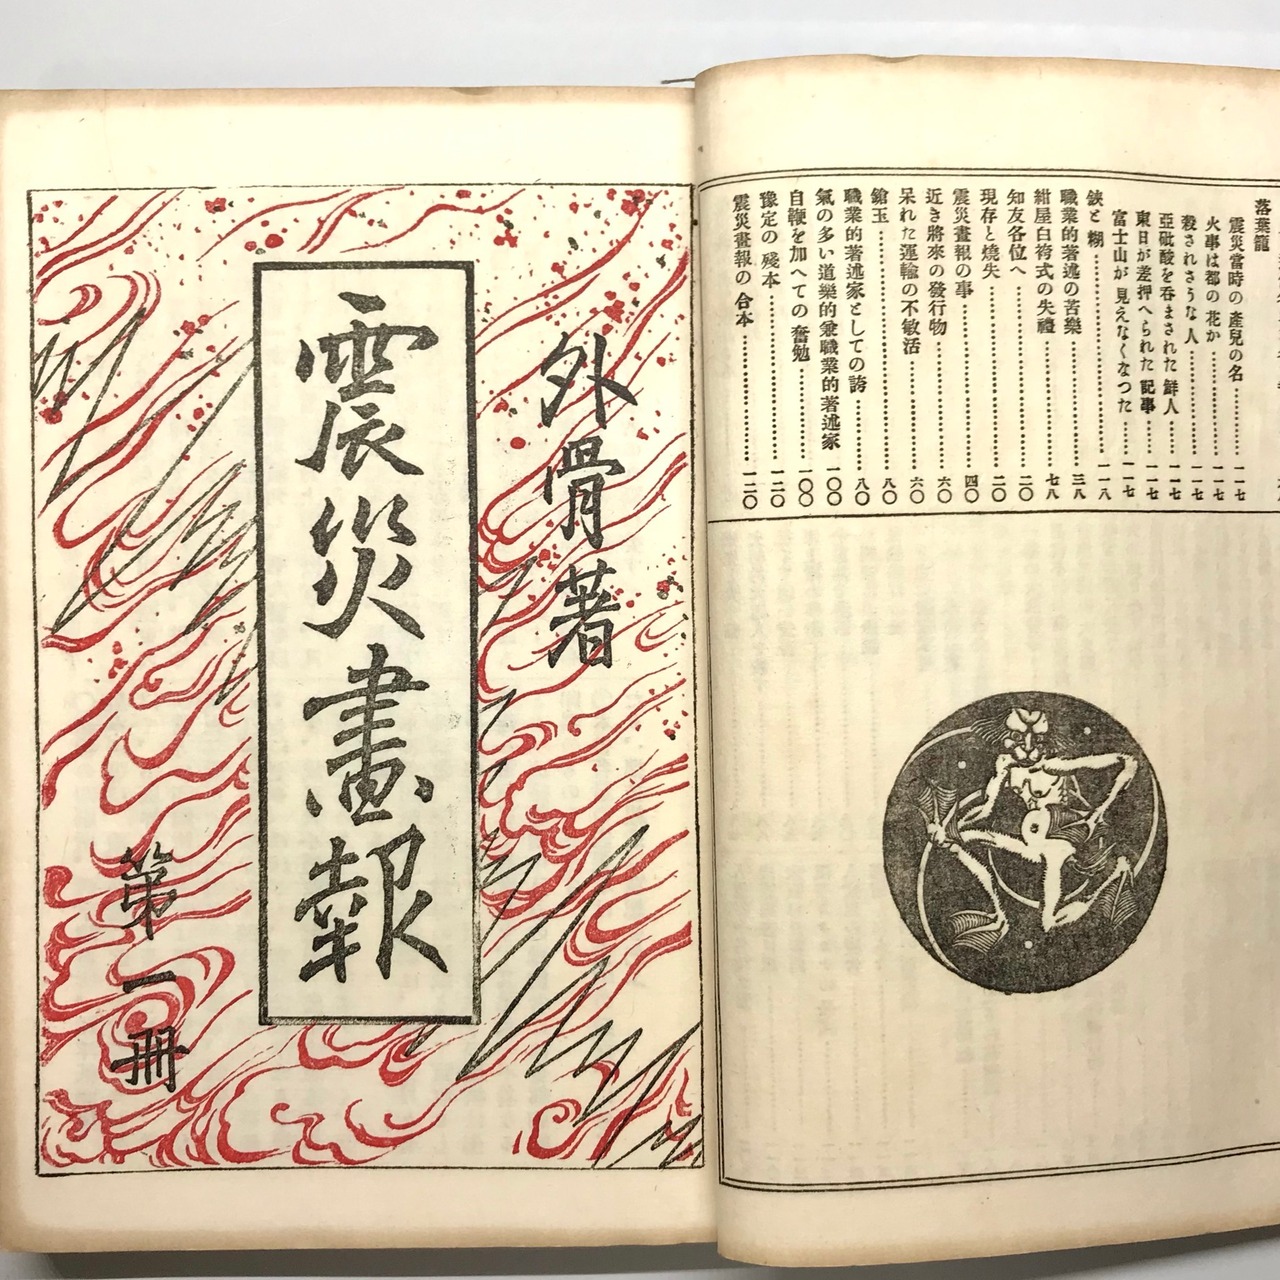 落葉籠
震災當時の產兒の名…………一一七
火事は都の花か…………一一七
殺されさうな人…………一一七
亞砒酸を呑まされた鮮人……一一七
東日が差押へられた記事……一一七
富士山が見えなくなつた……一一七
鋏と糊…………一一八
職業的著述の苦樂…………三八
紺屋白袴式の失禮…………七八
知友各位へ…………二〇
現存と燒失…………二〇
震災畫報の事…………四〇
近き將來の發行物…………六〇
呆れた運輸の不敏活…………六〇
鎗玉…………八〇
職業的著述家としての誇……八〇
氣の多い道樂的兼職業的著述家 一〇〇
自鞭を加へての奮勉…………一〇〇
豫定の殘本…………一二〇
震災畫報の合本…………一二〇
外骨著
震災畫報
第一冊